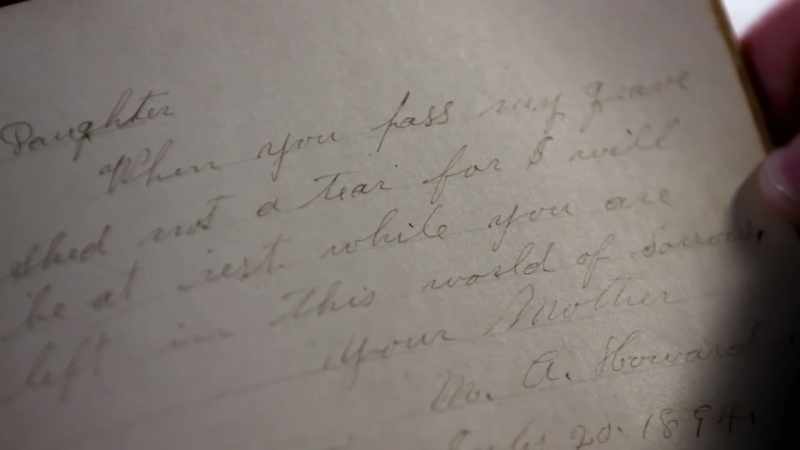 Daughter
When you pass my grave
shed not a tear for I will
be at rest while you are
left in this world of sorrow.
Your Mother
M. A. Howard
20. 1894.